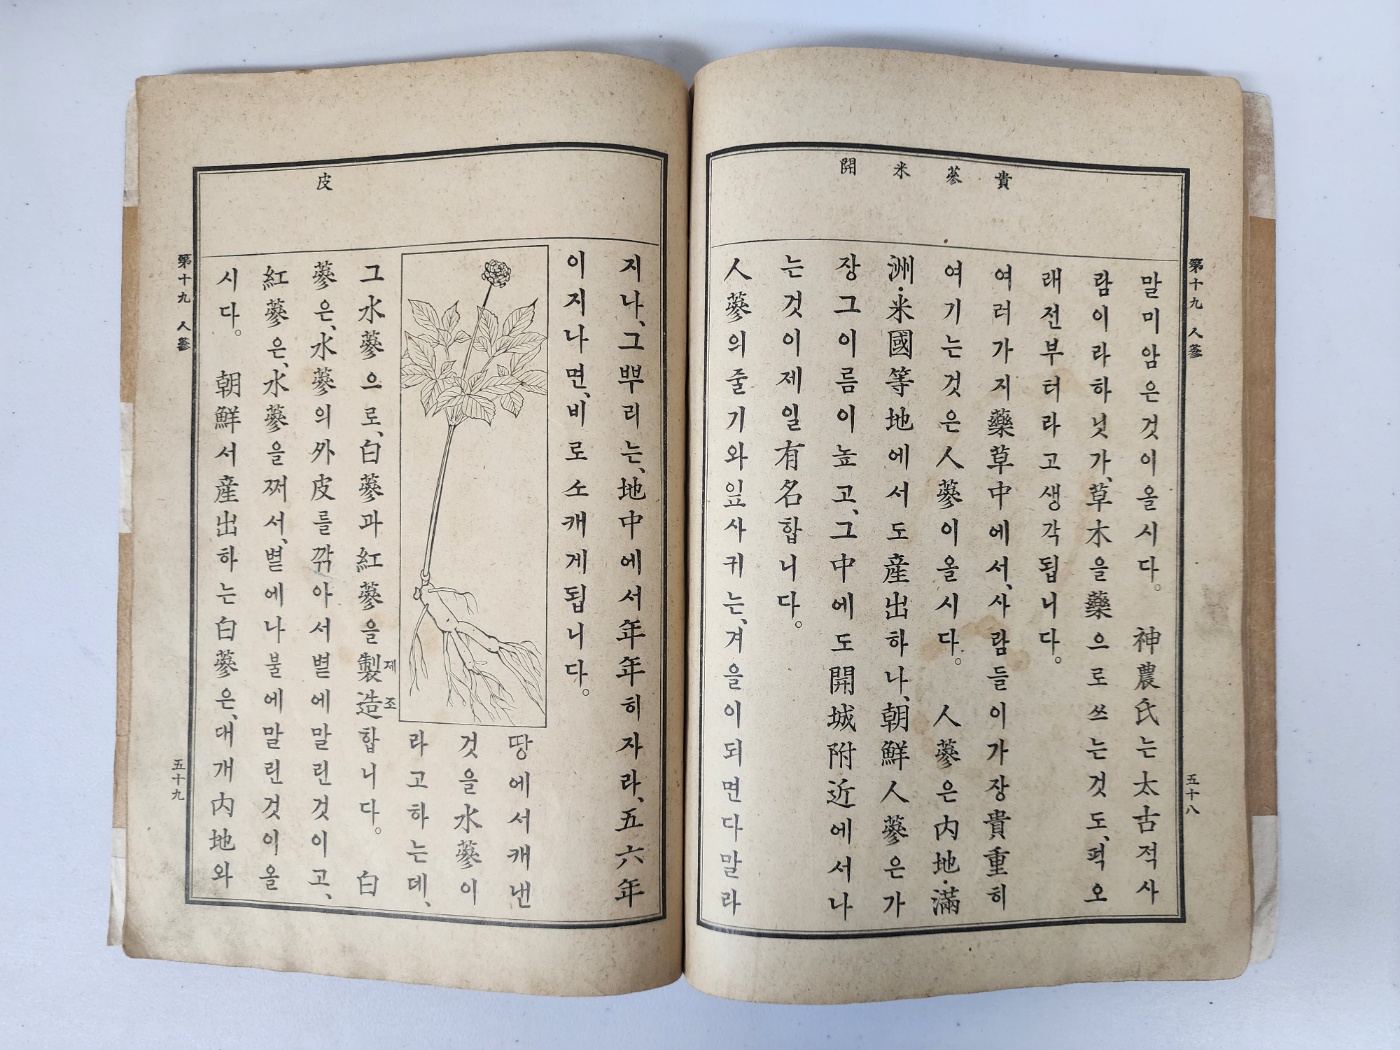 第十九 人蔘
五十八
貴
蔘
米
開
말미암은것이올시다。 神農氏는太古적사
람이라하닛가、草木을藥으로쓰는것도、퍽오
래전부터라고생각됩니다。
여러가지藥草中에서、사람들이가장貴重히
여기는것은人蔘이올시다。 人蔘은內地·滿
洲·米國等地에서도産出하나、朝鮮人蔘은가
장그이름이높고、그中에도開城附近에서나
는것이제일有名합니다。
人蔘의줄기와잎사귀는、겨을이되면다말라
皮
지나、그뿌리는、地中에서年年히자라、五六年
이지나면、비로소캐게됩니다。
땅에서캐낸
것을水蔘이
라고하는데、
그水蔘으로、白蔘과紅蔘을製造합니다。 白
제조
蔘은、水蔘의外皮를깎아서볕에말린것이고、
紅蔘은、水蔘을쩌서、볕에나불에말린것이올
시다。 朝鮮서産出하는白蔘은、대개內地와
第十九 人蔘
五十九